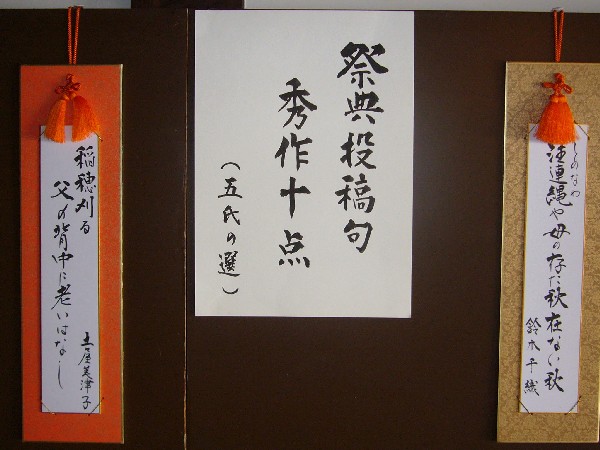 しめなわ
注連縄や母の存た秋在ない秋
鈴木千織
祭典投稿句
秀作十点
（五氏の選）
稲穂刈る
父の背中に老いはなし
土屋美津子